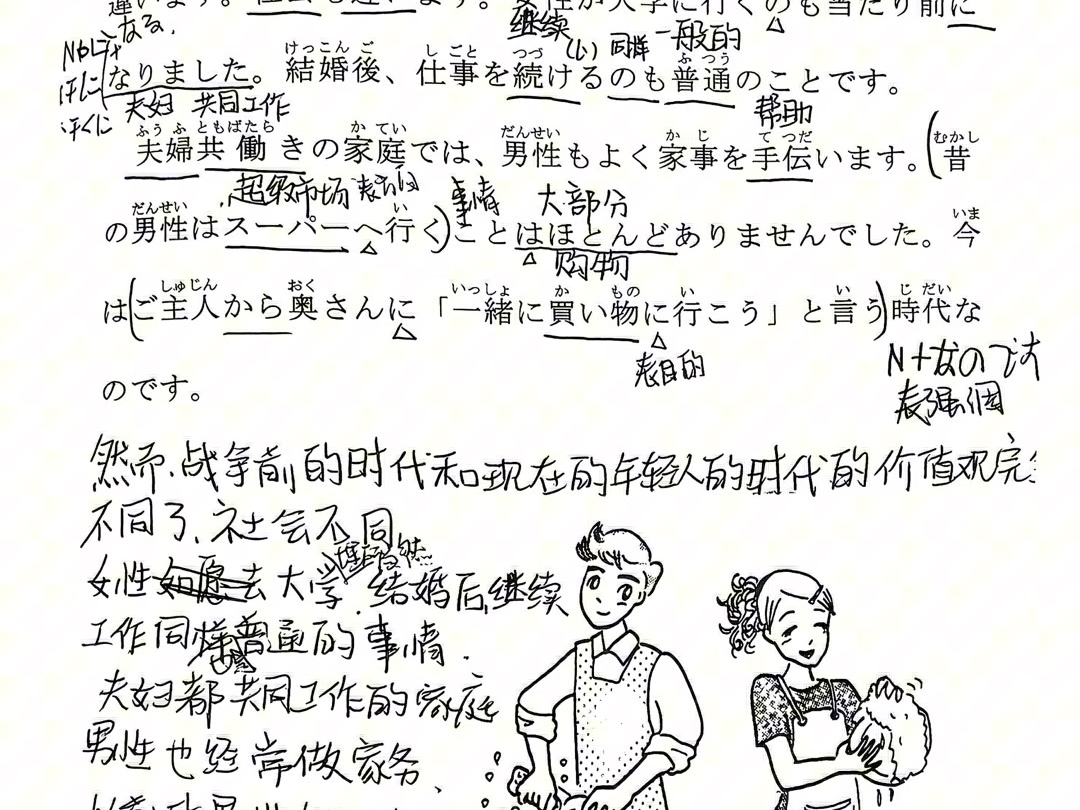 違います。社会も違います。女性が大学に行くのも当たり前に
なる. 继续 (し) 同样 一般的
けっこん ご し ごと つづ ふ つう
なりました。結婚後、仕事を続けるのも普通のことです。
夫妇 共同工作 帮助
ふう ふ ともばたら か てい だんせい か じ て つだ むかし
夫婦共働きの家庭では、男性もよく家事を手伝います。(昔
超级市场 事情 大部分
だんせい い いま
の男性はスーパーへ行く)ことはほとんどありませんでした。今
购物
しゅじん おく いっしょ か もの い い じ だい
は(ご主人から奥さんに「一緒に買い物に行こう」と言う)時代な
表目的 N+なのです
のです。
表强调
然而.战争前的时代和现在的年轻人的时代的价值观完
不同了.社会不同
理所当然
女性去大学.结婚后继续
工作同样普通的事情.
夫妇都共同工作的家庭
男性也经常做家务、